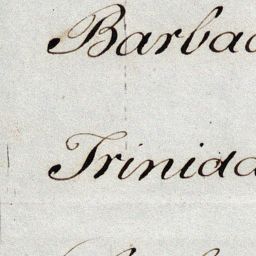 Barbad
Trinida